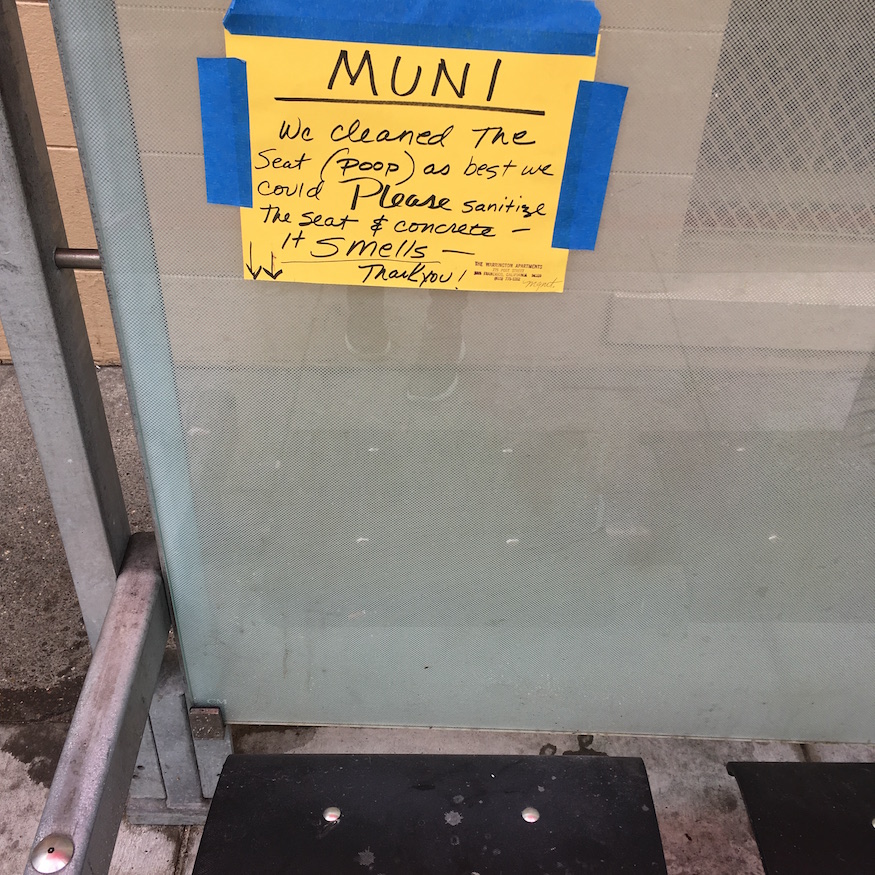 MUNI
We cleaned The
Seat (poop) as best we
could Please sanitize
The seat & concrete -
It smells -
Thank you!
THE WASHINGTON APARTMENTS
SAN FRANCISCO, CALIFORNIA
mgmt.